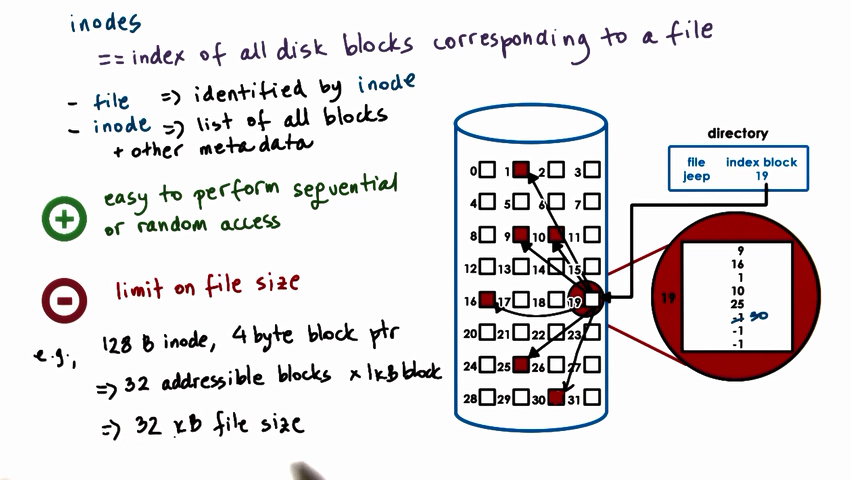 inodes
== index of all disk blocks corresponding to a file
- file => identified by inode
- inode => list of all blocks
+ other metadata
+
easy to perform sequential
or random access
-
limit on file size
e.g., 128 B inode, 4 byte block ptr
=> 32 addressible blocks x 1kB block
=> 32 kB file size
0 1 2 3
4 5 6 7
8 9 10 11
12 13 14 15
16 17 18 19
20 21 22 23
24 25 26 27
28 29 30 31
directory
file index block
jeep 19
19
9
16
1
10
25
-1 30
-1
-1